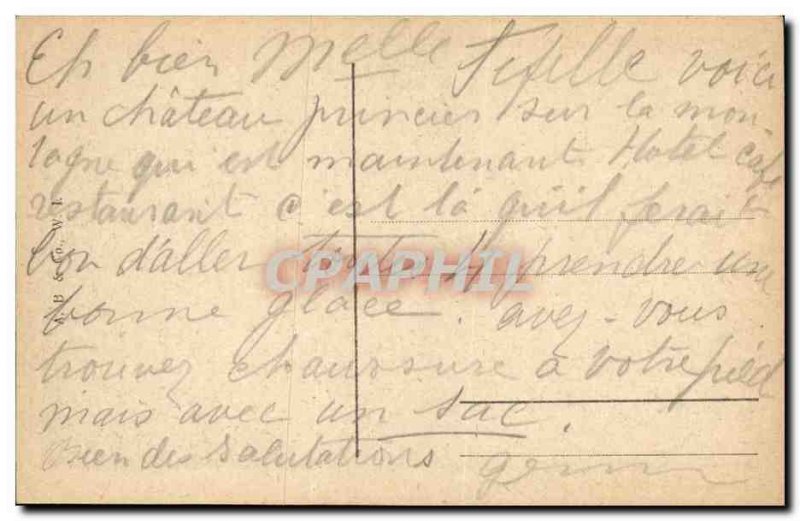 Eh bien Melle voici
un château princier sur la mon
tagne qui est maintenant Hotel café
restaurant c'est là qu'il ferait
bon d'aller prendre une
bonne glace. avez-vous
trouvez chaussure à votre pied
mais avec un sac.
Bien des salutations
CPARAMA